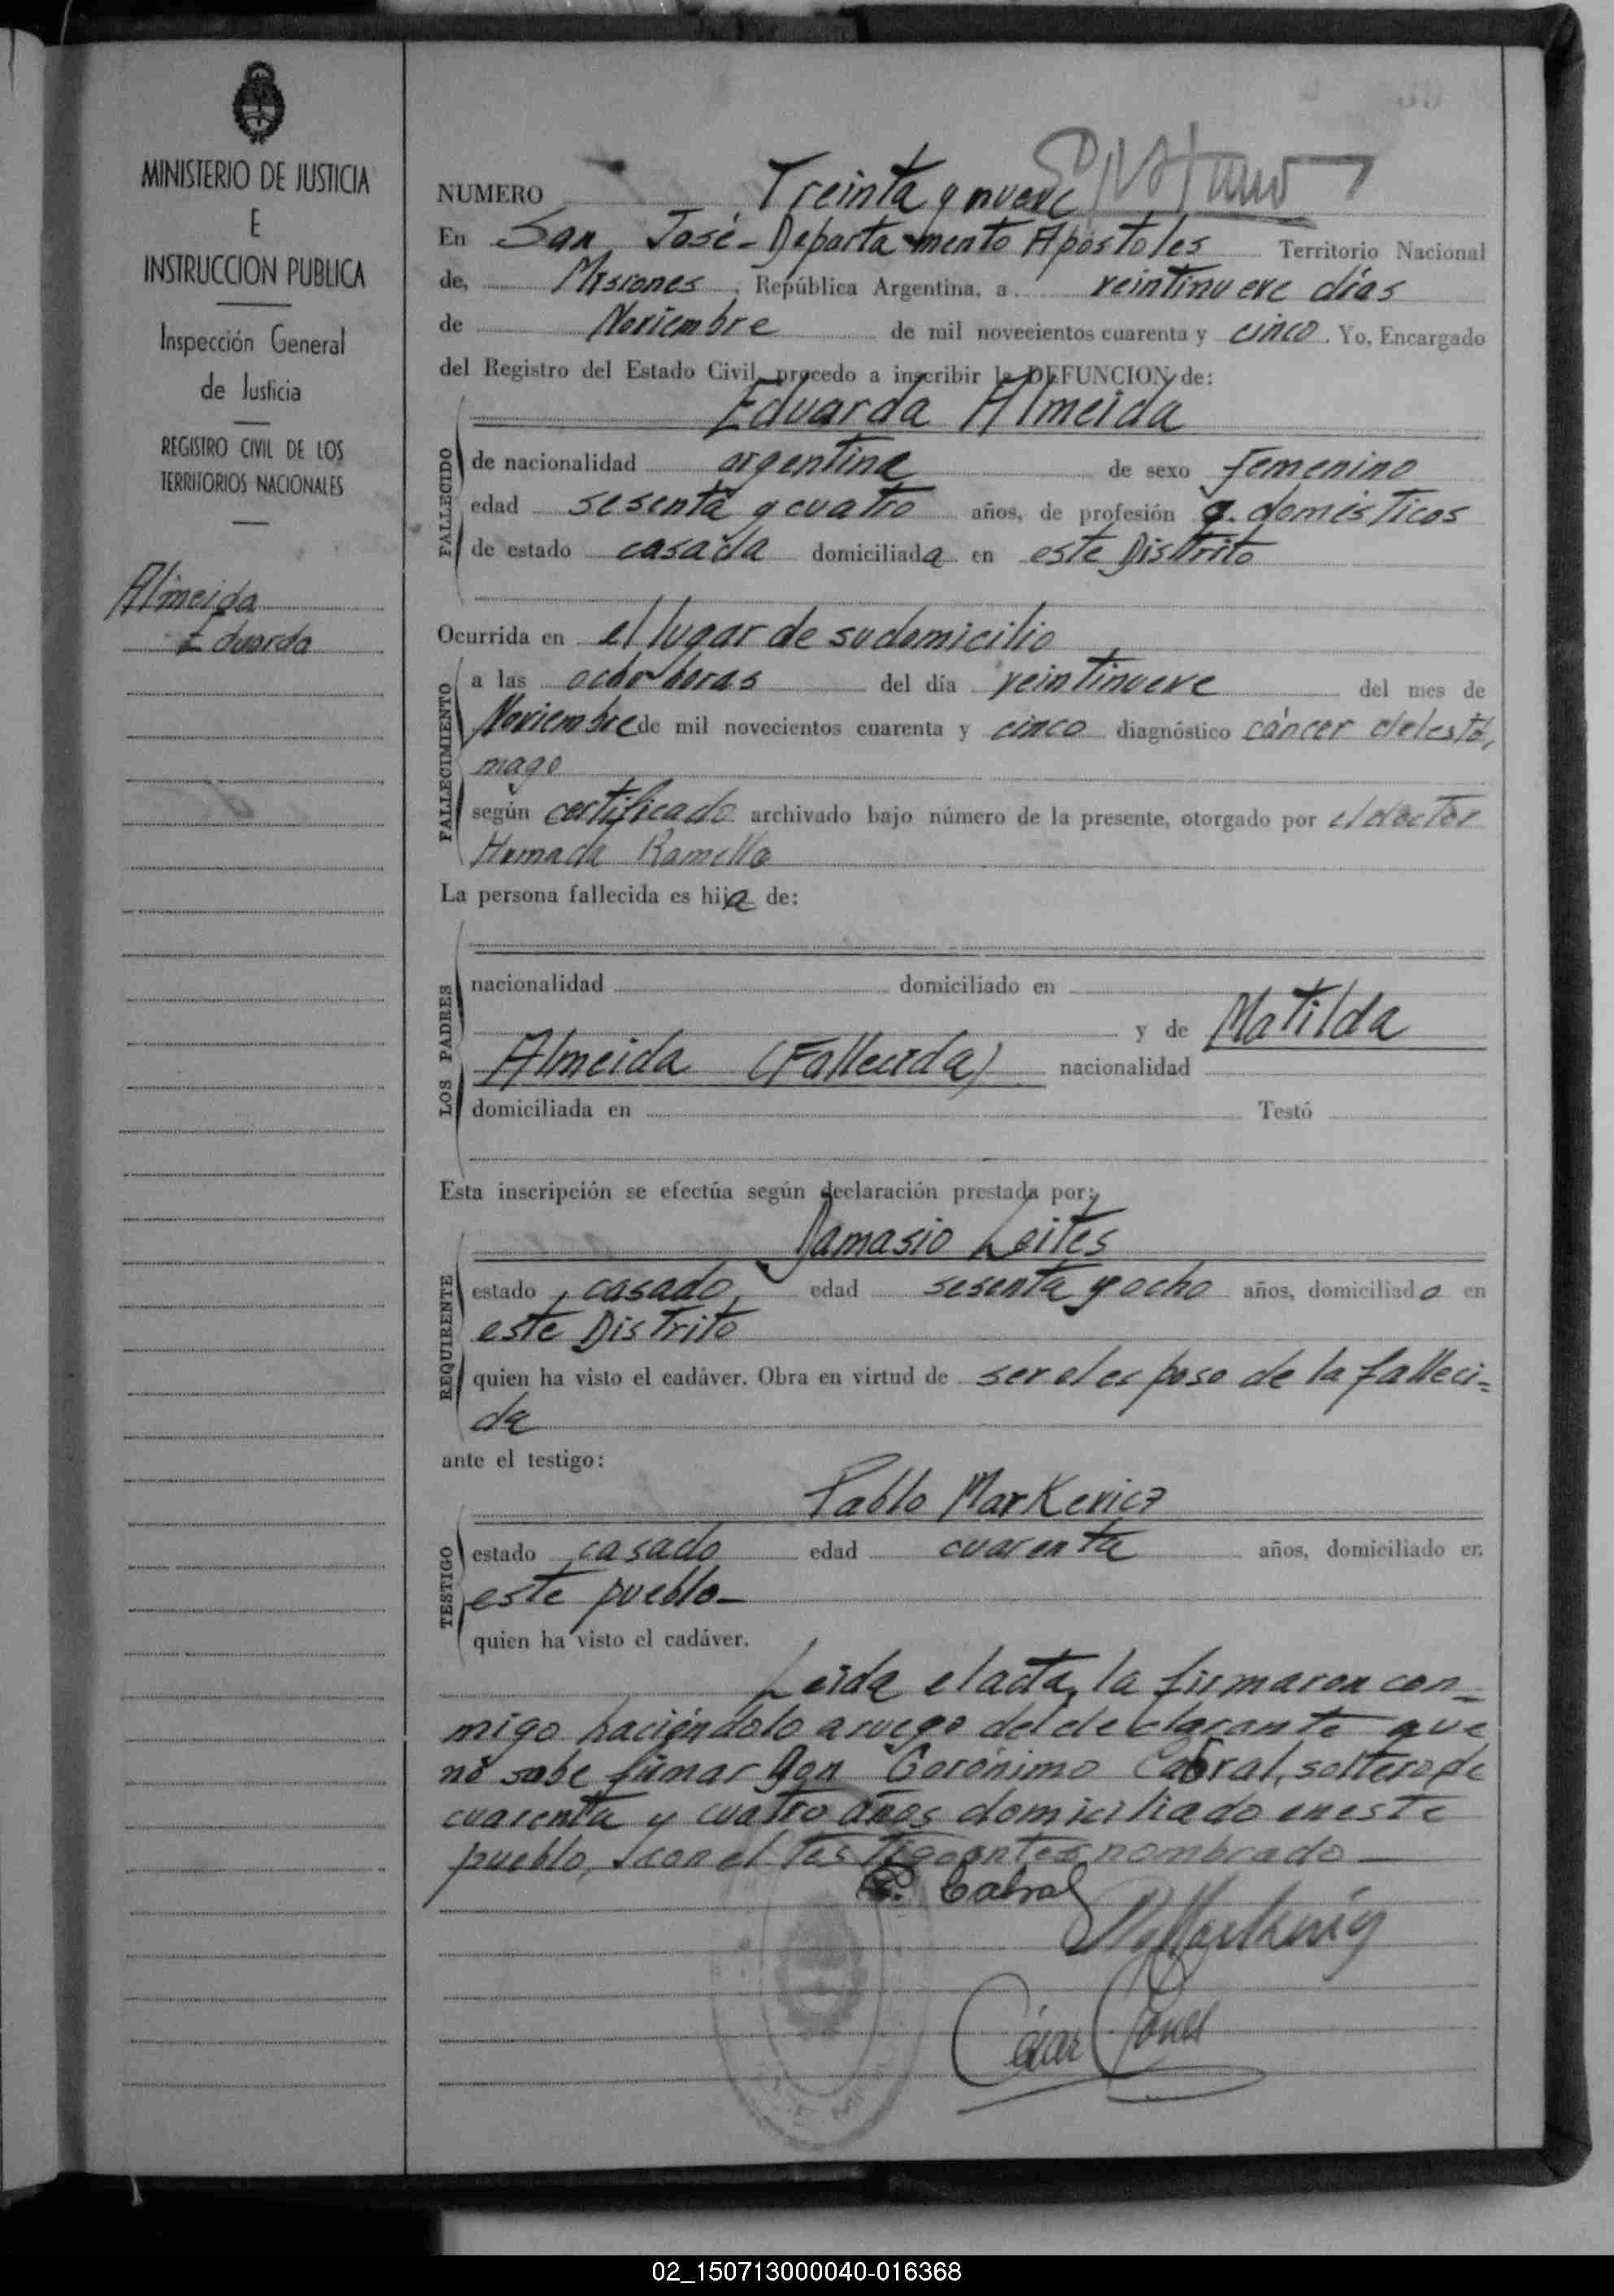 MINISTERIO DE JUSTICIA
E
INSTRUCCION PUBLICA
Inspección General
de Justicia
REGISTRO CIVIL DE LOS
TERRITORIOS NACIONALES
Almeida
Eduarda
NUMERO Treinta y nueve
En San José - Departamento Apóstoles Territorio Nacional
de, Misiones, República Argentina, a veintinueve días
de Noviembre de mil novecientos cuarenta y cinco. Yo, Encargado
del Registro del Estado Civil, procedo a inscribir la DEFUNCION de:
Eduarda Almeida
FALLECIDO
de nacionalidad argentina de sexo femenino
edad sesenta y cuatro años, de profesión q. domésticos
de estado casada domiciliada en este Distrito
Ocurrida en el lugar de su domicilio
FALLECIMIENTO
a las ocho horas del día veintinueve del mes de
Noviembre de mil novecientos cuarenta y cinco diagnóstico cáncer del estó,
mago
según certificado archivado bajo número de la presente, otorgado por el doctor
Ramella
La persona fallecida es hija de:
LOS PADRES
nacionalidad domiciliado en
y de Matilda
Almeida (Fallecida) nacionalidad
domiciliada en Testó
Esta inscripción se efectúa según declaración prestada por:
Damasio Leites
REQUIRENTE
estado casado, edad sesenta y ocho años, domiciliado en
este Distrito
quien ha visto el cadáver. Obra en virtud de ser el esposo de la falleci=
da
ante el testigo:
Pablo Markevicz
TESTIGO
estado casado edad cuarenta años, domiciliado en
este pueblo-
quien ha visto el cadáver.
Leída el acta, la firmaron con-
migo haciéndolo a ruego del declarante que
nó sabe firmar Don Gerónimo Cabral, soltero de
cuarenta y cuatro años domiciliado en este
pueblo, y con el testigo antes nombrado —
G. Cabral
César
02_150713000040-016368